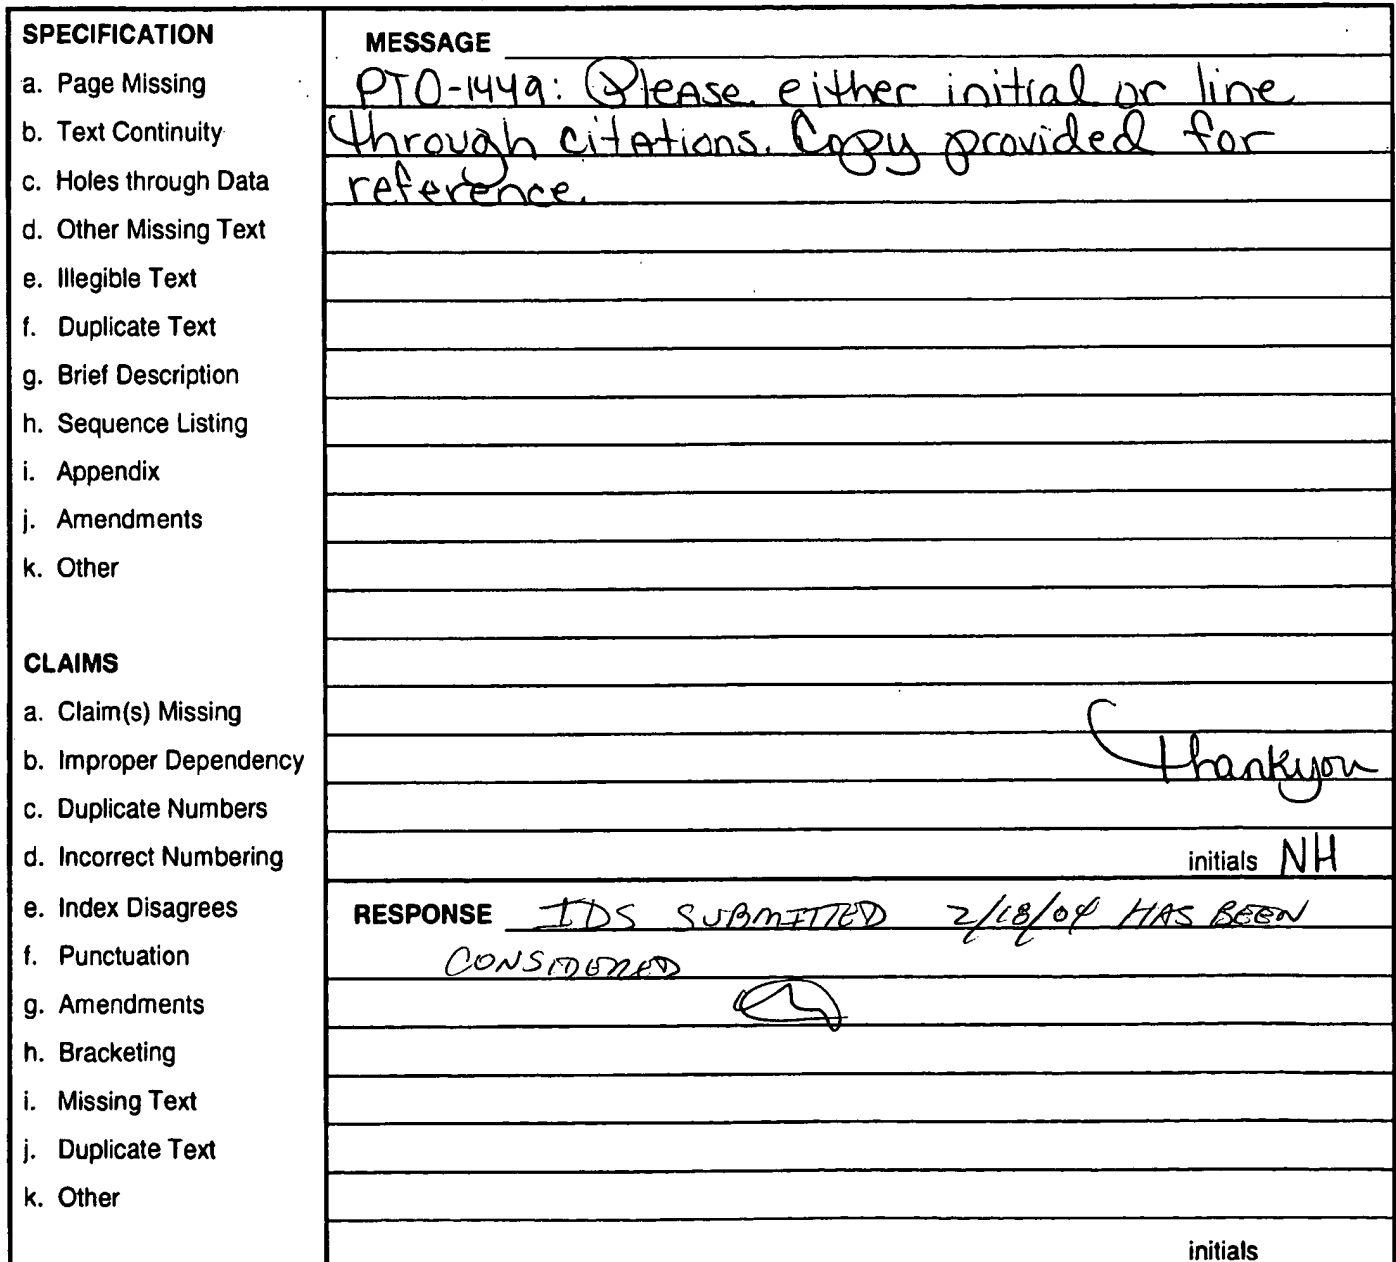 SPECIFICATION
a. Page Missing
b. Text Continuity
c. Holes through Data
d. Other Missing Text
e. Illegible Text
f. Duplicate Text
g. Brief Description
h. Sequence Listing
i. Appendix
j. Amendments
k. Other
CLAIMS
a. Claim(s) Missing
b. Improper Dependency
c. Duplicate Numbers
d. Incorrect Numbering
e. Index Disagrees
f. Punctuation
g. Amendments
h. Bracketing
i. Missing Text
j. Duplicate Text
k. Other
MESSAGE
PTO-1449: Please either initial or line
through citations. Copy provided for
reference.
Thankyou
initials NH
RESPONSE IDS SUBMITTED 2/18/04 HAS BEEN
CONSIDERED
initials